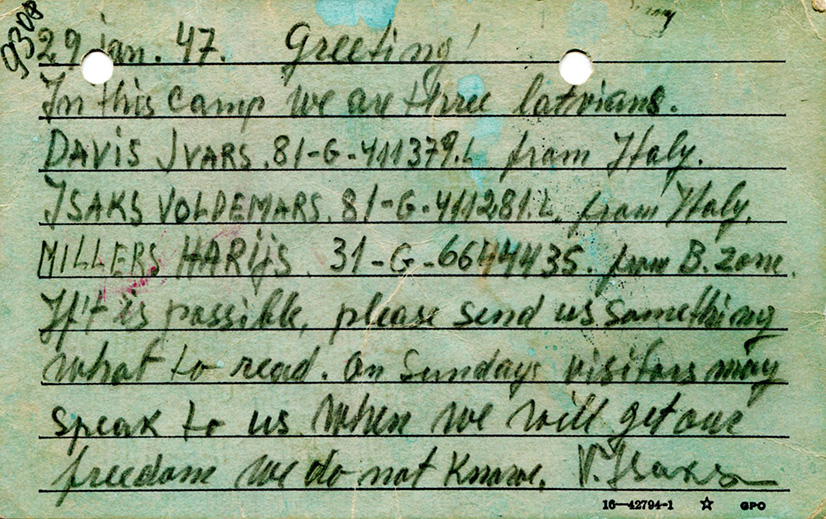 9308
29 jan. 47. Greeting!
In this camp we are three latvians.
DAVIS IVARS. 81-G-411379.L from Italy.
ISAKS VOLDEMARS. 81-G-411281.L. from Italy.
MILLERS HARIJS. 31-G-6644435. from B. zone.
If't is possible, please send us something
what to read. On Sundays visitors may
speak to us. When we will get our
freedom we do not know. V. Isaks
16—42794-1 ☆ GPO